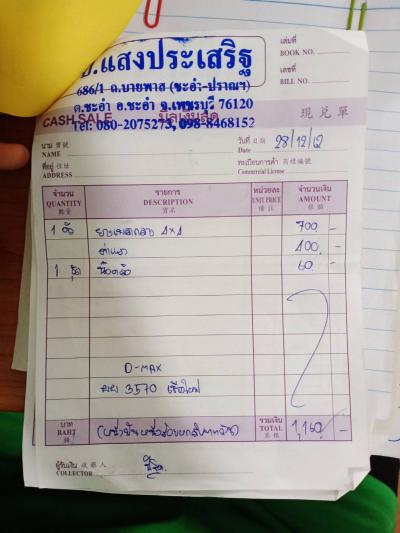 อ.แสงประเสริฐ
686/1 ถ.บายพาส (ชะอำ-ปราณฯ)
ต.ชะอำ อ.ชะอำ จ.เพชรบุรี 76120
Tel: 080-2075273, 098-8468152
เล่มที่
BOOK NO.
เลขที่
BILL NO.
CASH SALE บิลเงินสด 現兌單
นาม 寶號
NAME
วันที่ 日期
Date 28/12/62
ที่อยู่ 住址
ADDRESS
ทะเบียนการค้า 商標編號
Commercial License
จำนวน QUANTITY 數量
รายการ DESCRIPTION 貨名
หน่วยละ UNIT PRICE
จำนวนเงิน AMOUNT
1 4x4 700 -
ค่าแรง 400 -
1 น๊อตล้อ 60 -
D-MAX
3570 เชียงใหม่
บาท BAHT (หนึ่งพันหนึ่งร้อยหกสิบบาทถ้วน) รวมเงิน TOTAL 1,160 -
ผู้รับเงิน 收銀人
COLLECTOR